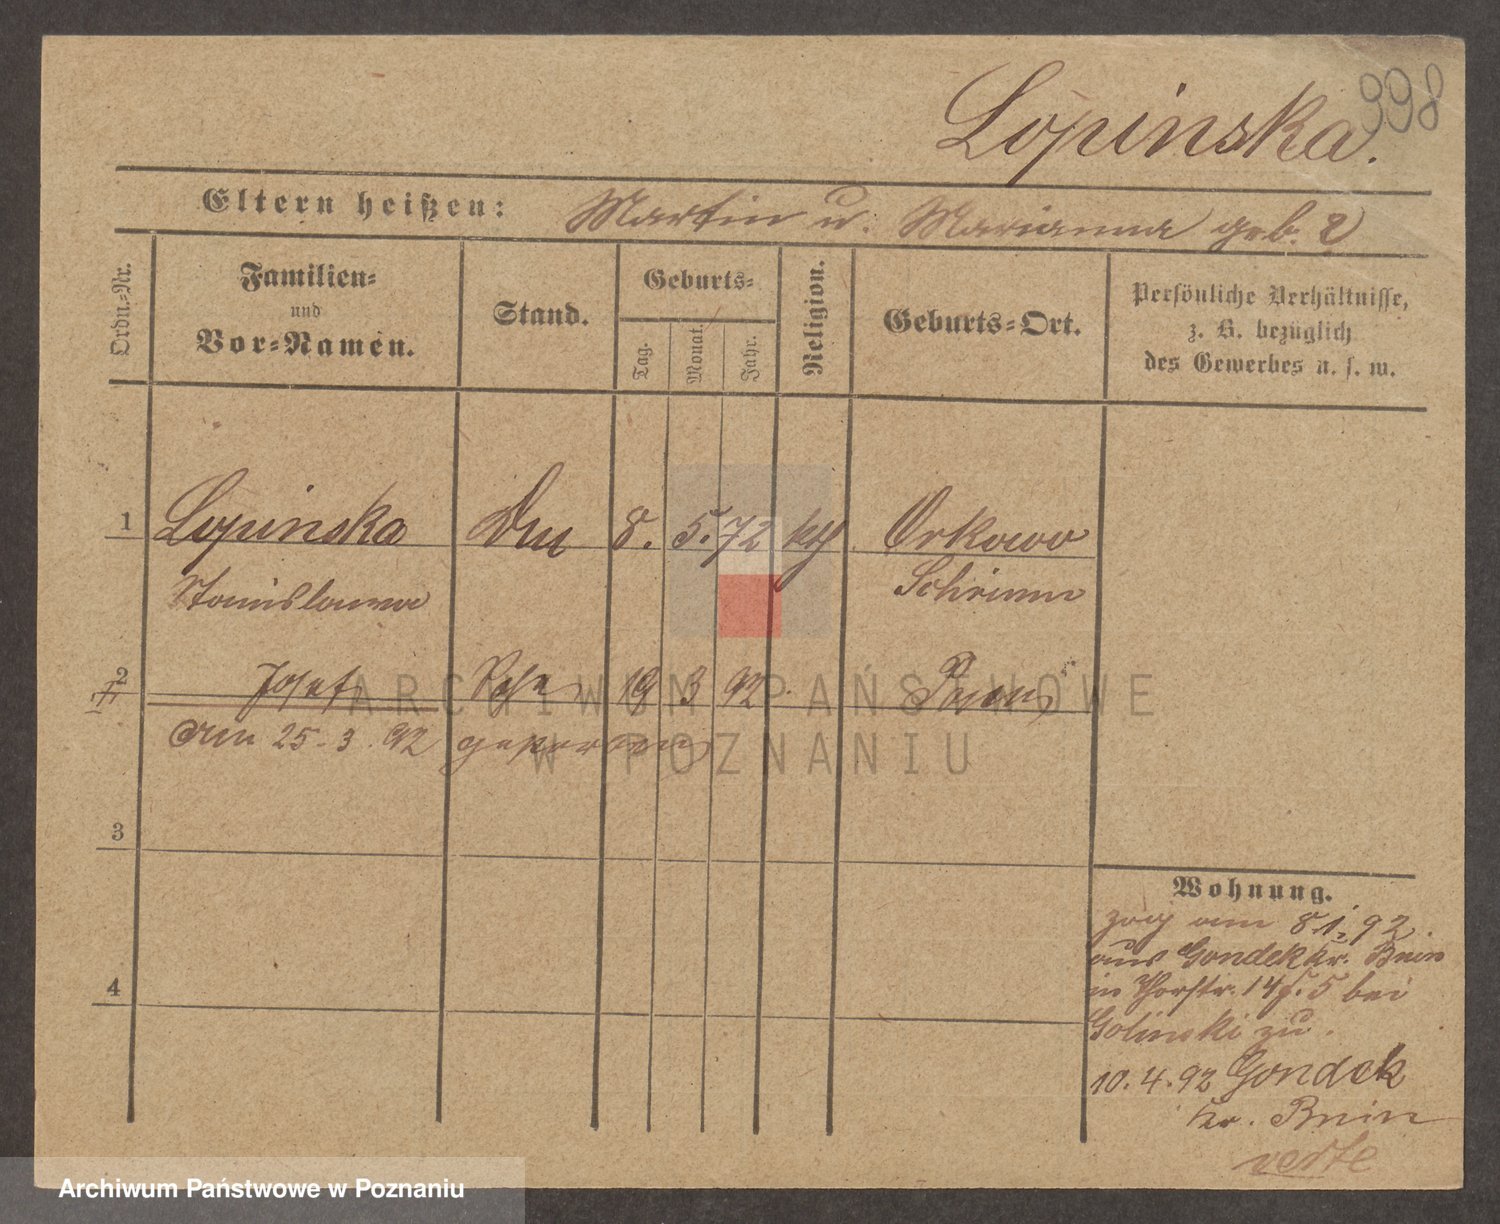 398
Lopinska.
Eltern heißen: Martin u. Marianna geb. ?
Ordn.-Nr.
Familien-
und
Vor-Namen.
Stand.
Geburts-
Tag.
Monat.
Jahr.
Religion.
Geburts-Ort.
Persönliche Verhältnisse,
z. B. bezüglich
des Gewerbes u. s. w.
1 Lopinska 8. 5. 72 kth Orkowo
Stanislawa Schrimm
2 Josef Sohn 19 3 92 Posen
Am 25-3. 92 gestorben
3
4
Wohnung.
zog am 8.1.92.
aus Gondek kr. Bnin
in Thorstr. 14 5 bei
Golinski zu.
10.4.92 Gondek
kr. Bnin
verte
ARCHIWUM PAŃSTWOWE
W POZNANIU
Archiwum Państwowe w Poznaniu